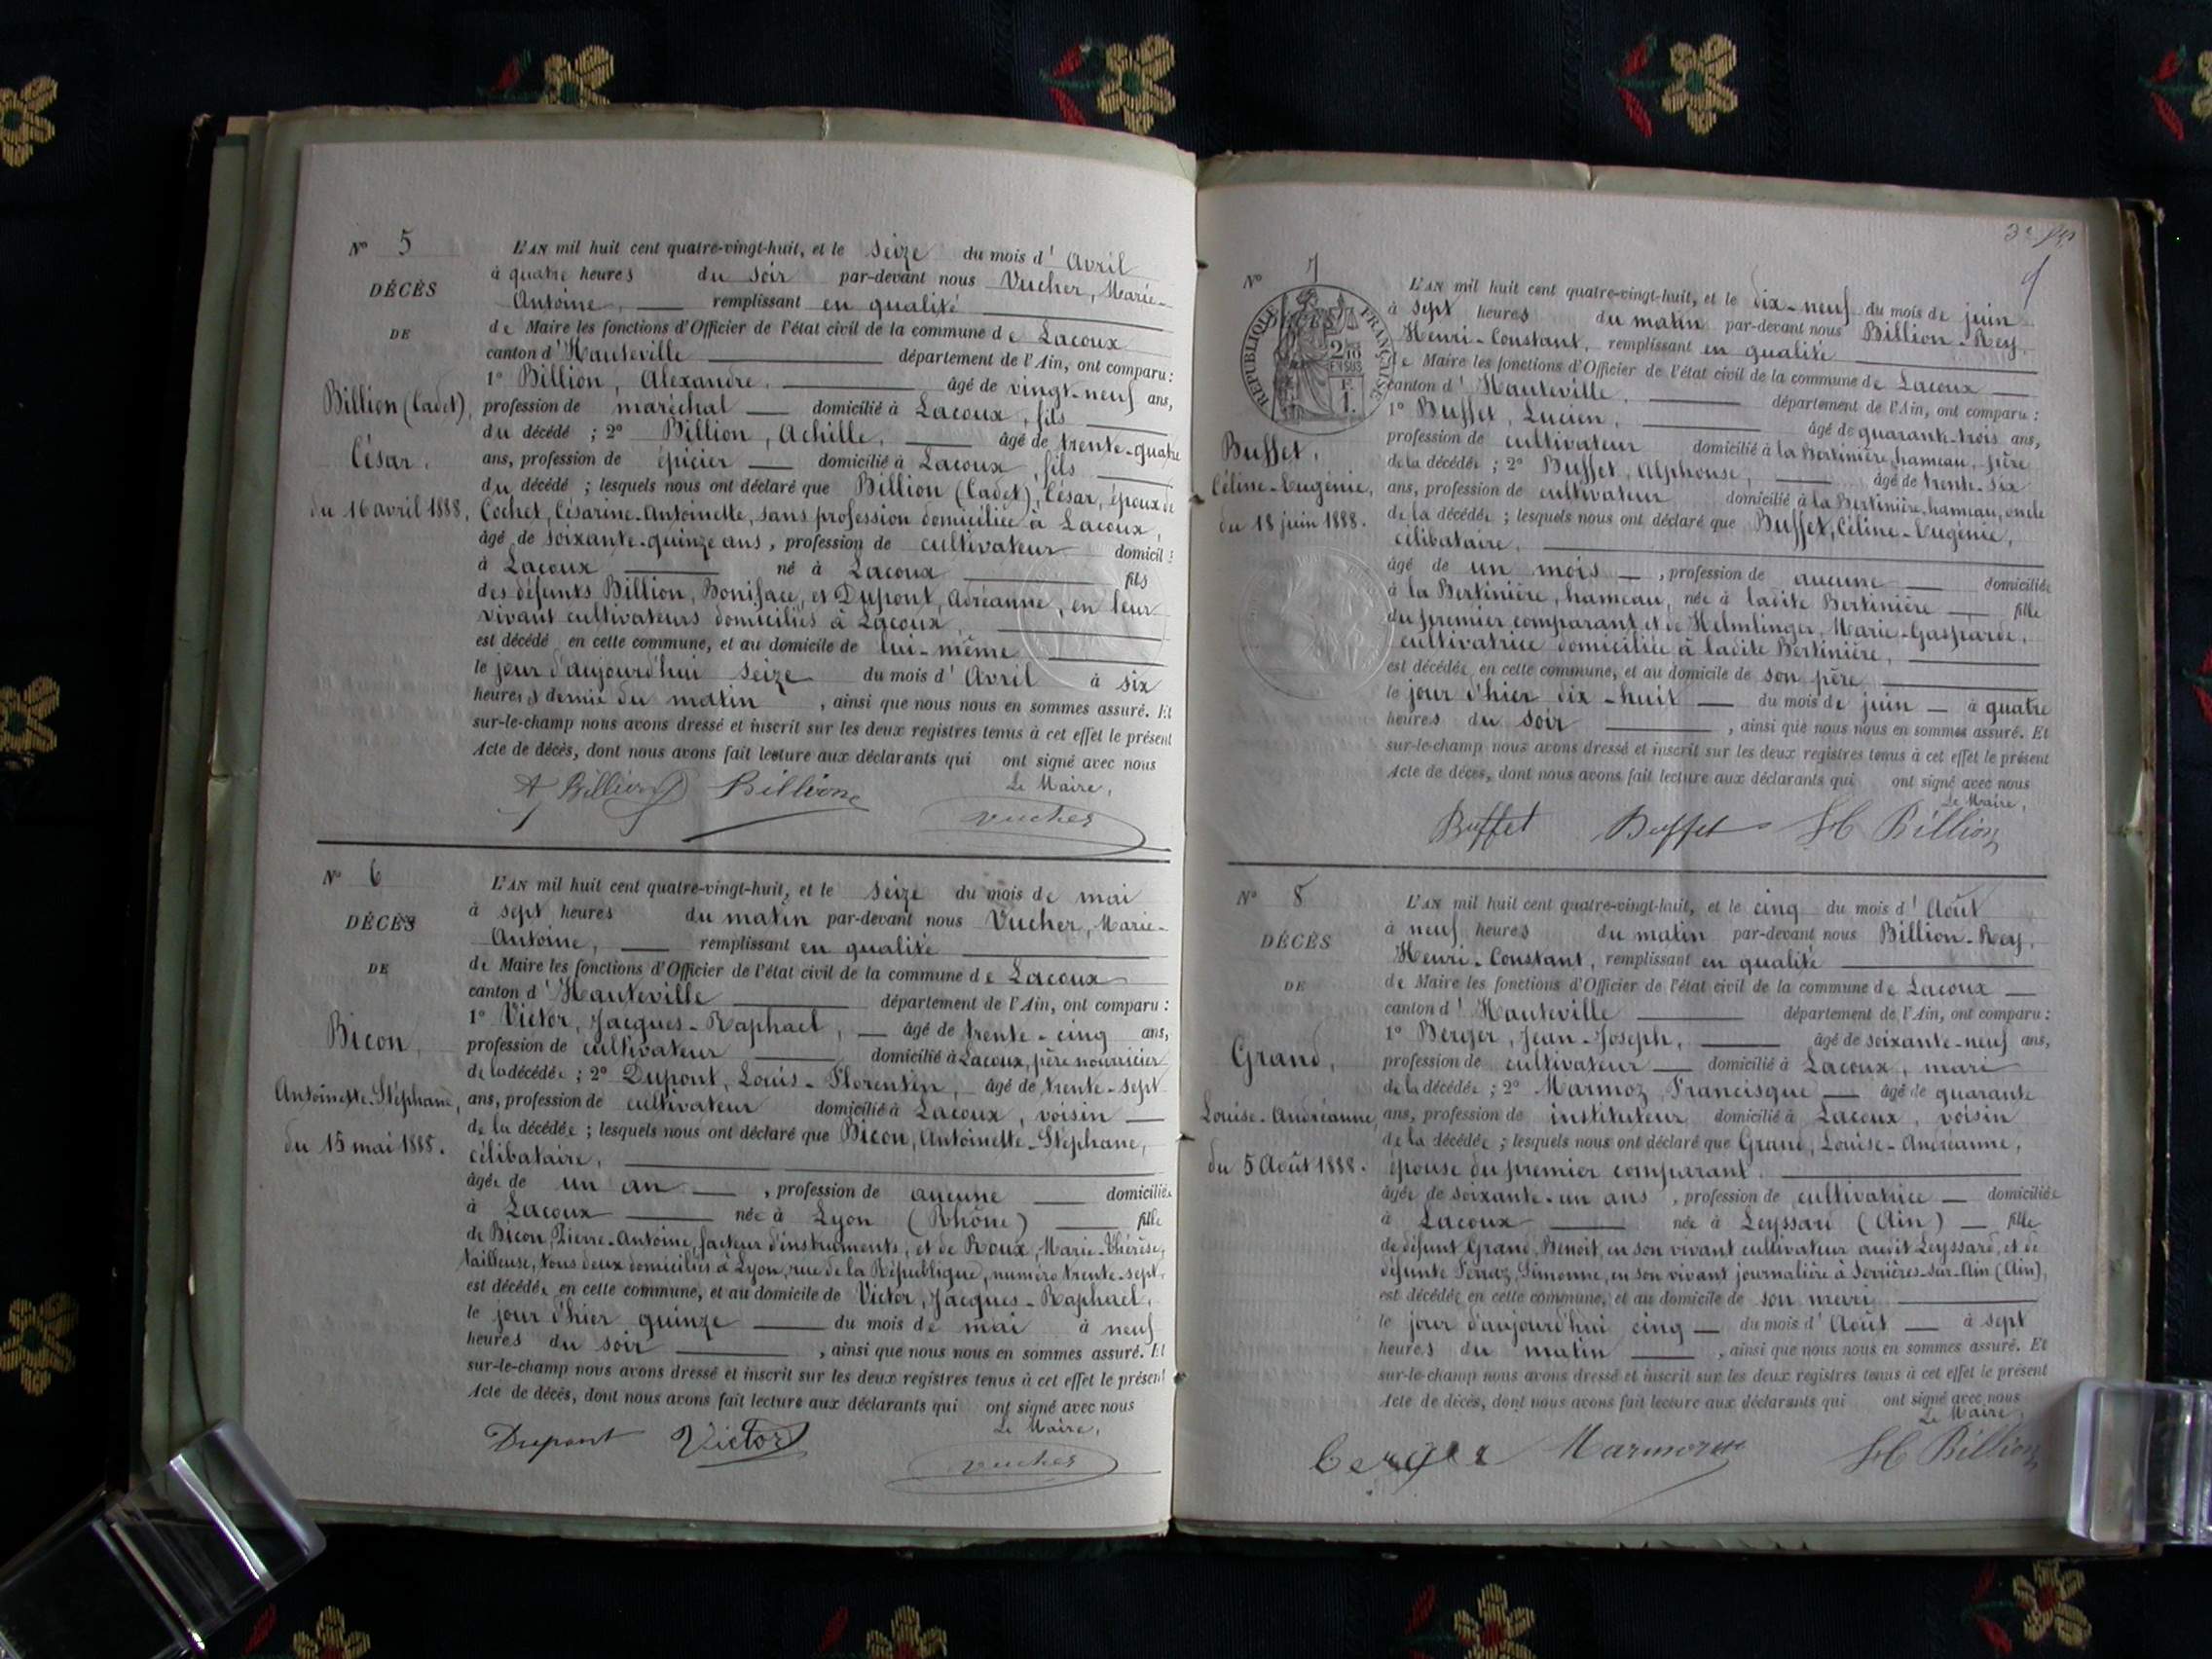 Nº 5
DÉCÈS
DE
Billion (Cadet),
César.
du 16 avril 1888.
L'AN mil huit cent quatre-vingt-huit, et le seize du mois d'Avril
à quatre heures du soir par-devant nous Vucher, Marie-
Antoine, remplissant en qualité
de Maire les fonctions d'Officier de l'état civil de la commune de Lacoux
canton d'Hauteville département de l'Ain, ont comparu :
1º Billion, Alexandre, âgé de vingt-neuf ans,
profession de maréchal domicilié à Lacoux, fils
du décédé ; 2º Billion, Achille, âgé de trente-quatre
ans, profession de épicier domicilié à Lacoux, fils
du décédé ; lesquels nous ont déclaré que Billion (Cadet), César, époux de
Cochet, Césarine-Antoinette, sans profession domiciliée à Lacoux,
âgé de soixante-quinze ans, profession de cultivateur domicil:
à Lacoux né à Lacoux fils
des défunts Billion, Boniface, et Dupont, Adréanne, en leur
vivant cultivateurs domiciliés à Lacoux,
est décédé en cette commune, et au domicile de lui-même
le jour d'aujourd'hui seize du mois d'Avril à six
heures demie du matin, ainsi que nous nous en sommes assuré. Et
sur-le-champ nous avons dressé et inscrit sur les deux registres tenus à cet effet le présent
Acte de décès, dont nous avons fait lecture aux déclarants qui ont signé avec nous
Le Maire,
A Billion Billion Vucher
Nº 6
DÉCÈS
DE
Bicon,
Antoinette-Stéphane,
du 15 mai 1888.
L'AN mil huit cent quatre-vingt-huit, et le seize du mois de mai
à sept heures du matin par-devant nous Vucher, Marie-
Antoine, remplissant en qualité
de Maire les fonctions d'Officier de l'état civil de la commune de Lacoux
canton d'Hauteville département de l'Ain, ont comparu :
1º Victor, Jacques-Raphael, âgé de trente-cinq ans,
profession de cultivateur domicilié à Lacoux, père nourricier
de la décédée ; 2º Dupont, Louis-Florentin, âgé de trente-sept
ans, profession de cultivateur domicilié à Lacoux, voisin
de la décédée ; lesquels nous ont déclaré que Bicon, Antoinette-Stéphane,
célibataire,
âgée de un an, profession de aucune domiciliée
à Lacoux née à Lyon (Rhône) fille
de Bicon, Pierre-Antoine, facteur d'instruments, et de Roux, Marie-Thérèse,
tailleuse, tous deux domiciliés à Lyon, rue de la République, numéro trente-sept,
est décédée en cette commune, et au domicile de Victor, Jacques-Raphael,
le jour d'hier quinze du mois de mai à neuf
heures du soir, ainsi que nous nous en sommes assuré. Et
sur-le-champ nous avons dressé et inscrit sur les deux registres tenus à cet effet le présent
Acte de décès, dont nous avons fait lecture aux déclarants qui ont signé avec nous
Le Maire,
Dupont Victor Vucher
Nº 7
RÉPUBLIQUE FRANÇAISE
Buffet,
Céline-Eugénie,
du 18 juin 1888.
L'AN mil huit cent quatre-vingt-huit, et le dix-neuf du mois de juin
à sept heures du matin par-devant nous Billion-Rey,
Henri-Constant, remplissant en qualité
de Maire les fonctions d'Officier de l'état civil de la commune de Lacoux
canton d'Hauteville, département de l'Ain, ont comparu :
1º Buffet, Lucien, âgé de quarante-trois ans,
profession de cultivateur domicilié à la Bertinière, hameau, père
de la décédée ; 2º Buffet, Alphonse, âgé de trente-six
ans, profession de cultivateur domicilié à la Bertinière, hameau, oncle
de la décédée ; lesquels nous ont déclaré que Buffet, Céline-Eugénie,
célibataire,
âgé de un mois, profession de aucune domiciliée
à la Bertinière, hameau, née à ladite Bertinière fille
du premier comparant et de Helmlinger, Marie-Gasparde,
cultivatrice domiciliée à ladite Bertinière,
est décédée en cette commune, et au domicile de son père
le jour d'hier dix-huit du mois de juin à quatre
heures du soir, ainsi que nous nous en sommes assuré. Et
sur-le-champ nous avons dressé et inscrit sur les deux registres tenus à cet effet le présent
Acte de décès, dont nous avons fait lecture aux déclarants qui ont signé avec nous
Le Maire,
Buffet Buffet H Billion
Nº 8
DÉCÈS
DE
Grand,
Louise-Andréanne,
du 5 Août 1888.
L'AN mil huit cent quatre-vingt-huit, et le cinq du mois d'Août
à neuf heures du matin par-devant nous Billion-Rey,
Henri-Constant, remplissant en qualité
de Maire les fonctions d'Officier de l'état civil de la commune de Lacoux
canton d'Hauteville département de l'Ain, ont comparu :
1º Berger, Jean-Joseph, âgé de soixante-neuf ans,
profession de cultivateur domicilié à Lacoux, mari
de la décédée ; 2º Marmoz, Francisque âgé de quarante
ans, profession de instituteur domicilié à Lacoux, voisin
de la décédée ; lesquels nous ont déclaré que Grand, Louise-Andréanne,
épouse du premier comparant.
âgée de soixante-un ans, profession de cultivatrice domiciliée
à Lacoux née à Leyssard (Ain) fille
de défunt Grand, Benoit, en son vivant cultivateur audit Leyssard, et de
défunte Ferraz, Simonne, en son vivant journalière à Serrières-sur-Ain (Ain),
est décédée en cette commune, et au domicile de son mari
le jour d'aujourd'hui cinq du mois d'Août à sept
heures du matin, ainsi que nous nous en sommes assuré. Et
sur-le-champ nous avons dressé et inscrit sur les deux registres tenus à cet effet le présent
Acte de décès, dont nous avons fait lecture aux déclarants qui ont signé avec nous
Le Maire,
berger Marmoz H Billion